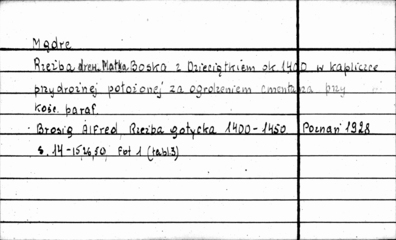 Mądre
Rzeźba drew. Matka Boska z Dzieciątkiem ok. 1400 w kapliczce
przydrożnej położonej za ogrodzeniem cmentarza przy
kośc. paraf.
Brosig Alfred, Rzeźba gotycka 1400-1450 Poznań 1928
s. 14-15,26,50, fot 1 (tabl3)